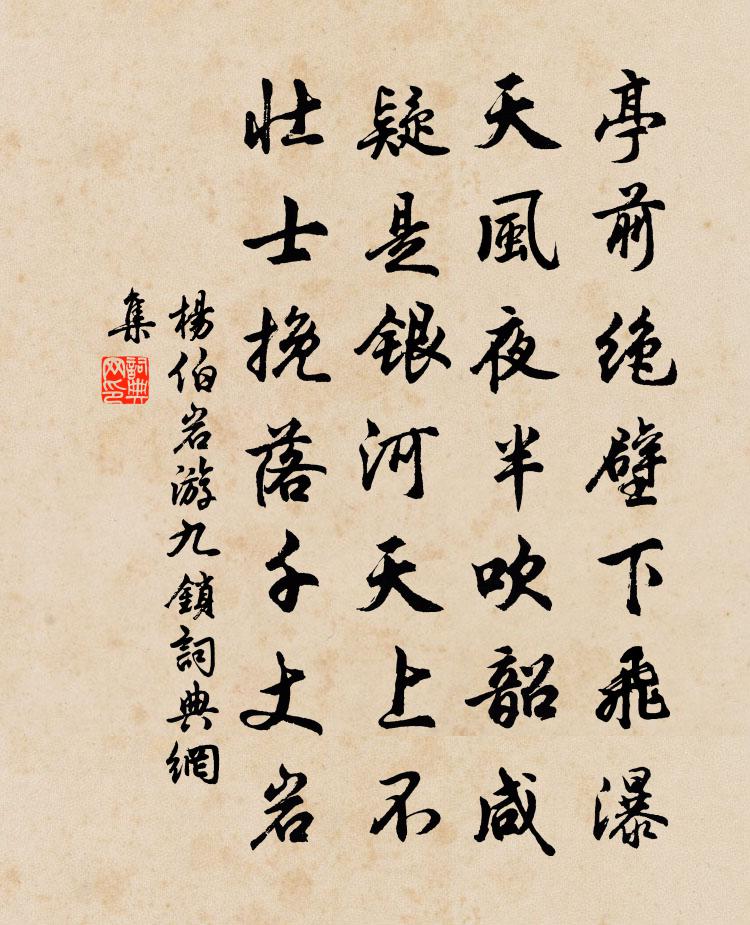 亭前绝壁下飛瀑
天風夜半吹韶咸
疑是銀河天上不
壮士挽落千丈岩
楊伯岩游九鎖詞典網
集
詞典网印